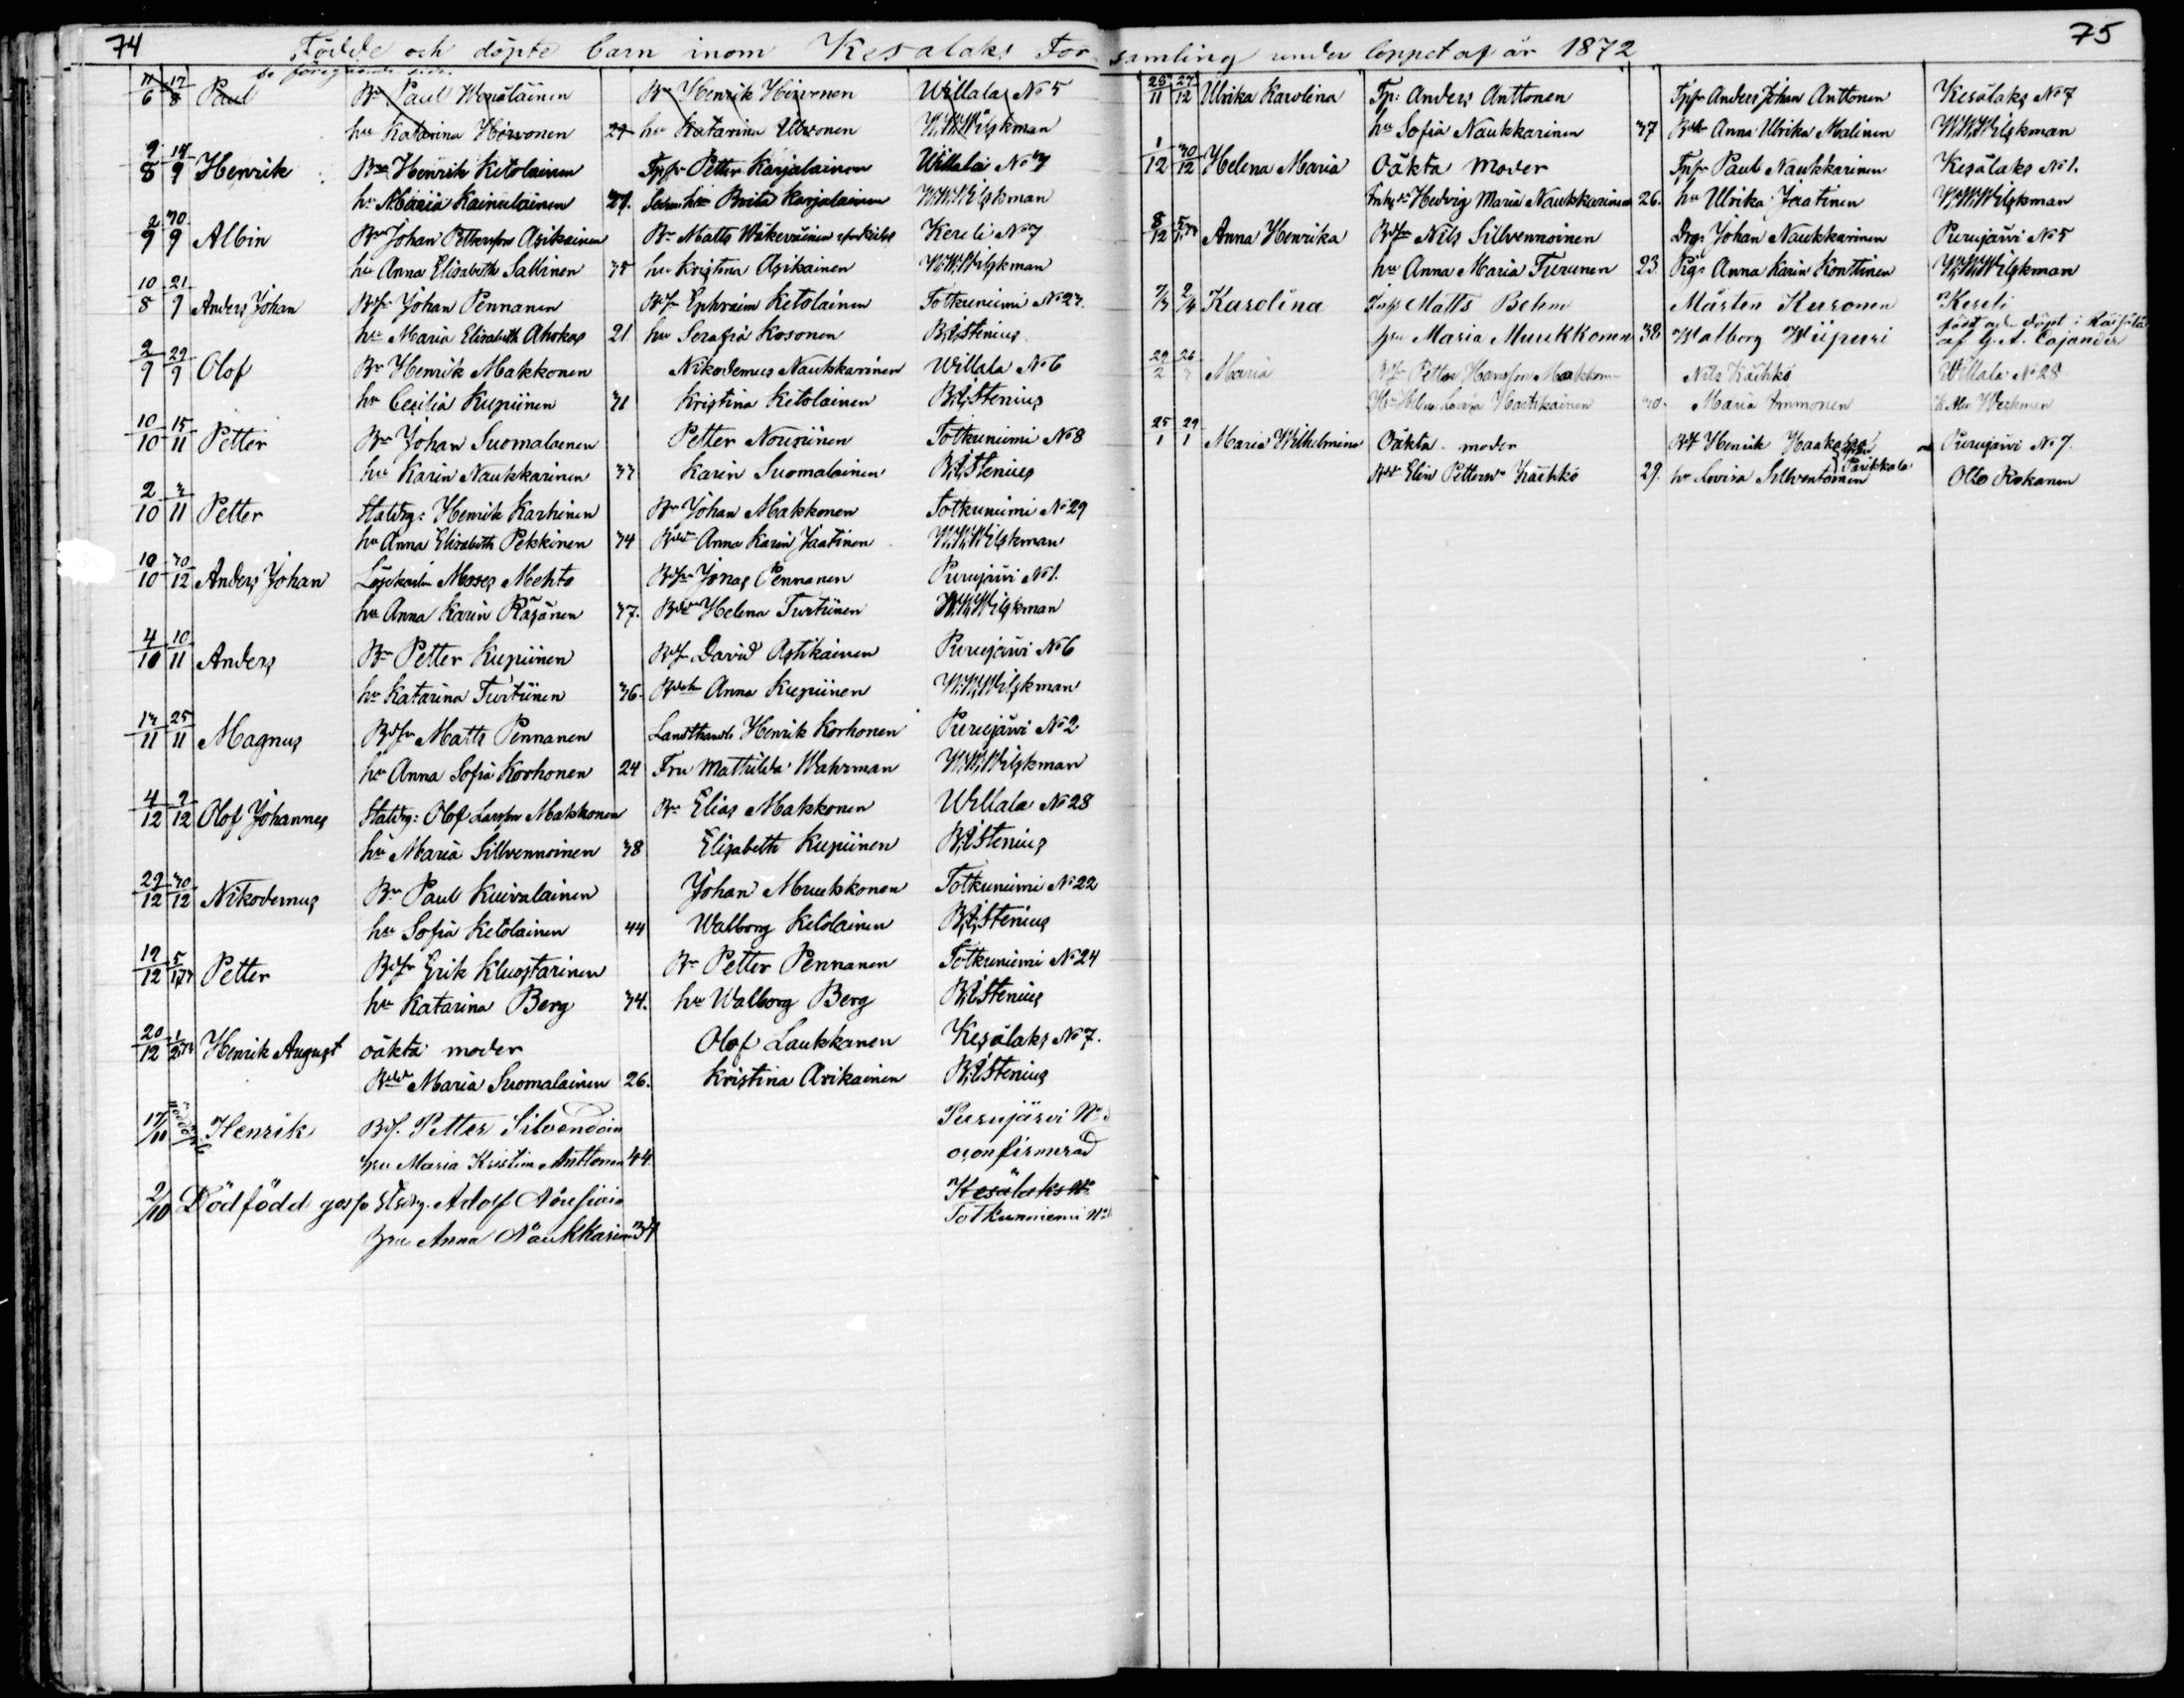 74
Födde och döpte barn inom Kesälaks För
se föregående sida
11/6 17/8 Paul Bn Paul Wenäläinen Bn Henrik Hirvonen Willala No 5
hu Katarina Hirvonen 29 hu Katarina W.W.Wilskman
9/8 14/9 Henrik Bn Henrik Ketolainen Petter Karjalainen Willala No 7
hu Maria Kainulainen 29. hu Brita Karjalainen W.W.Wilskman
2/9 30/9 Albin Bn Johan Pettersson Asikainen Bn Matts Wäkeväinen Kereli No 7
hu Anna Elisabeth Sallinen 35 hu Kristina Asikainen W.W.Wilskman
10/8 21/9 Anders Johan Bdsn Johan Pennanen Bdsn Ephraim Ketolainen Totkuniemi No 27.
hu Maria Elisabeth Ahokas 21 hu Serafia Kosonen B.A.Stenius
2/9 29/9 Olof Bn Henrik Makkonen Nikodemus Naukkarinen Willala No 6
hu Cecilia Kupiinen 31 Kristina Ketolainen B.A.Stenius
10/10 15/11 Petter Bn Johan Suomalainen Petter Nousiinen Totkuniemi No 8
hu Karin Naukkarinen 33 Karin Suomalainen B.A.Stenius
2/10 3/11 Petter Statdrg: Henrik Karhinen Bn Johan Makkonen Totkuniemi No 29
hu Anna Elisabeth Pekkinen 34 Anna Karin Jaatinen W.W.Wilskman
10/10 30/12 Anders Johan Moses Mehto Bdsn Jonas Pennanen Purujärvi No 1.
hu Anna Karin Räsänen 37. Helena Turtiinen W.W.Wilskman
4/10 10/11 Anders Bn Petter Kupiinen Bdsn David Asikainen Purujärvi No 6
hu Katarina Turtiinen 36. Anna Kupiinen W.W.Wilskman
13/11 25/11 Magnus Bdsn Matts Pennanen Landthandl Henrik Korhonen Purujärvi No 2
hu Anna Sofia Korhonen 24 Fru Mathilda Wahrman W.W.Wilskman
4/12 9/12 Olof Johannes Statdrg: Olof Larsson Makkonen Bn Elias Makkonen Willala No 28
hu Maria Sillvennoinen 38 Elisabeth Kupiinen B.A.Stenius
29/12 30/12 Nikodemus Bn Paul Kuivalainen Johan Muukkonen Totkuniemi No 22
hu Sofia Ketolainen 44 Walborg Ketolainen B.A.Stenius
19/12 5/1.73 Petter Bdsn Erik Kluostarinen Bn Petter Pennanen Totkuniemi No 24
hu Katarina Berg 34. hu Walborg Berg B.A.Stenius
20/12 1/2.73 Henrik August oäkta moder Olof Laukkanen Kesälaks No 7.
Maria Suomalainen 26. Kristina Asikainen B.A.Stenius
17/11 Henrik Bdsn. Petter Silvendoin Purujärvi No
hu Maria Kristin Anttonen 44. oconfirmerad
2/10 Dödfödd gosse Adolf Nousiain Kesälaks No
Totkunniemi No
hu Anna Naukkarin 34
75
samling under loppet af år 1872
25/11 27/12 Ulrika Karolina Tp: Anders Anttonen Anders Johan Anttonen Kesälaks No 7
hu Sofia Naukkarinen 37 Anna Ulrika Malinen W.W.Wilskman
1/12 30/12 Helena Maria Oäkta moder Paul Naukkarinen Kesälaks No 1.
Hedvig Maria Naukkarinen 26. hu Ulrika Jaatinen W.W.Wilskman
8/12 5/1.73 Anna Henrika Bdsn Nils Sillvennoinen Drg: Johan Naukkarinen Purujärvi No 5
hu Anna Maria Turunen 23 Pig: Anna Karin Konttinen W.W.Wilskman
7/3 2/4 Karolina Inhs Matts Behm Mårten Kuronen Kereli
hu Maria Muukkonen 38 Walborg Wiipuri född och döpt i Räisälä
af G.A. Cajander
29/2 26/3 Maria Bdsn Petter Hansson Makkonen Nils Käihkö Willala No 28
Lovisa Hartikainen Maria Immonen
25/1 29/1 Maria Wilhelmina Oäkta moder Henrik Haakana Purujärvi No 7.
Elin Pettersdr Käihkö 29. hu Lovisa Sillventoinen Parikkala Otto Rokanen